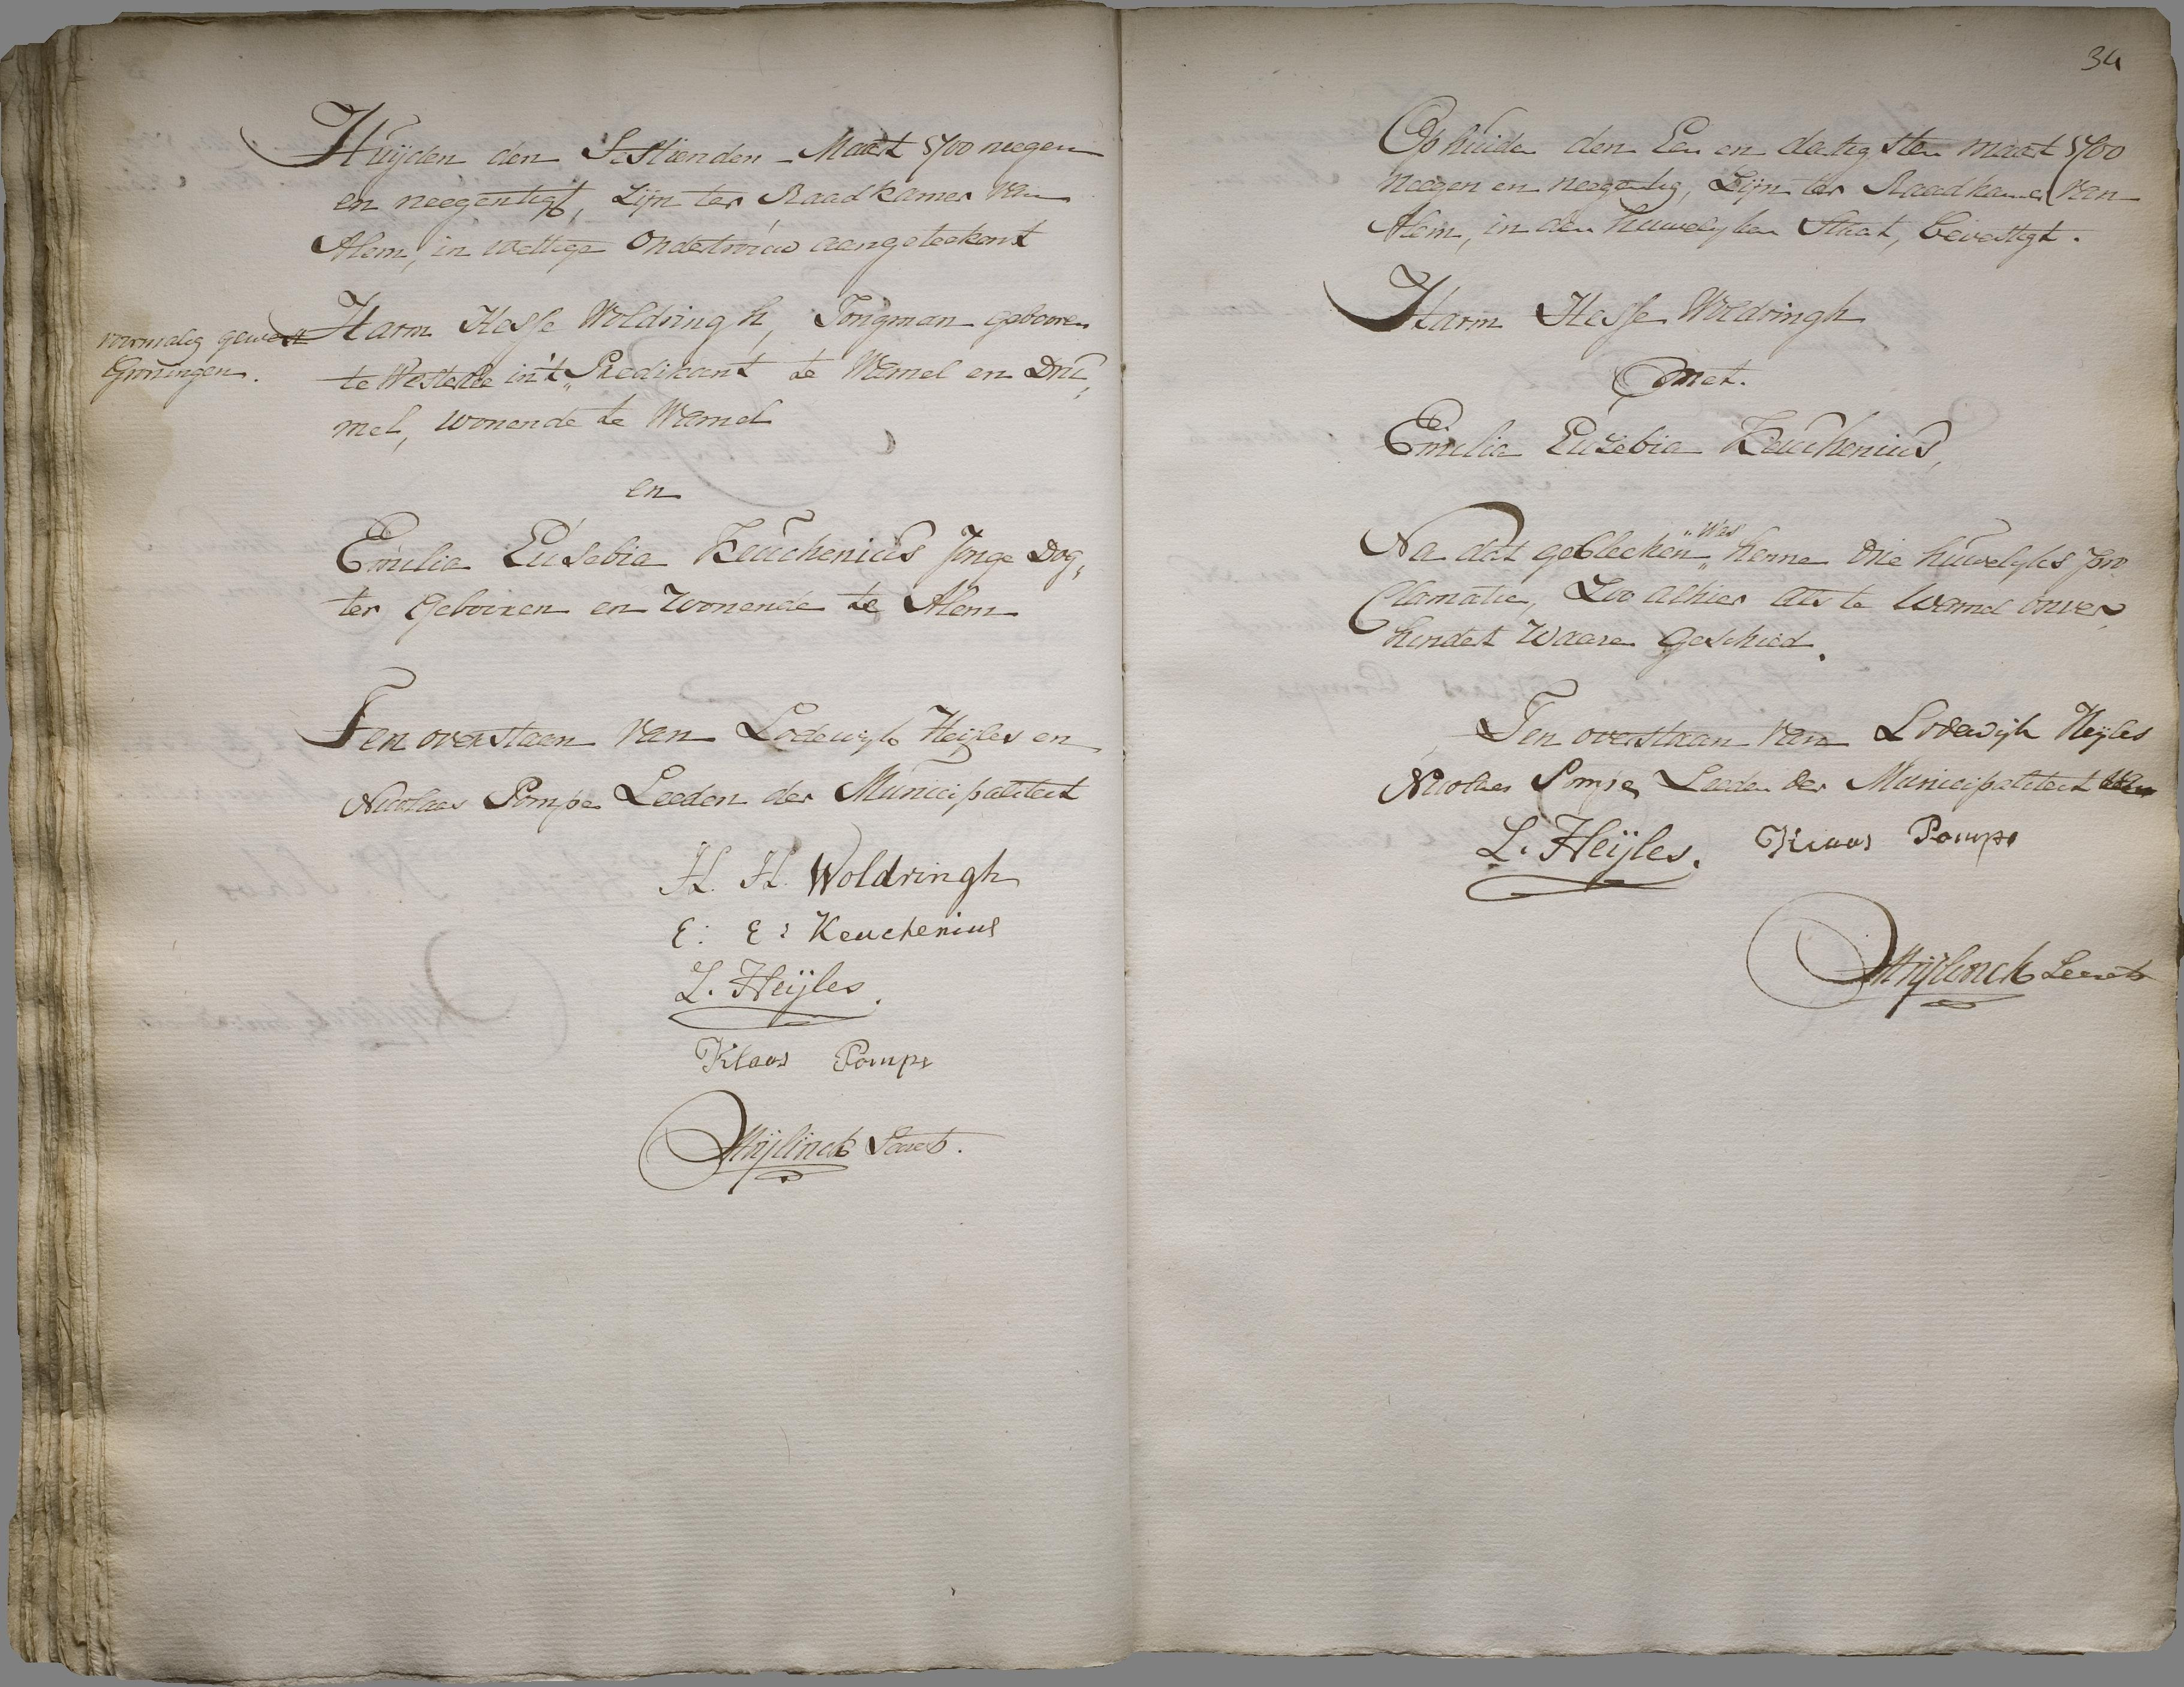 Huijden den Sestienden Maart 1700 neegen
en neegentigt, zijn ter Raadkamer van
Alem, in wettige ondertrouw aangeteekent
Harm Hesse Woldringh, Jongman gebooren
te Westerlee in't „ Predikant te Wamel en Dru,
mel, wonende te Wamel
vormalig gewest
Groningen.
en
Emilia Eusebia Keuchenius Jonge Dog,
ter Gebooren en Woonende te Alem
Ten overstaen van Lodewijk Heijles en
Nicolaes Pompe Leeden der Municipaliteit
H. H. Woldringh
E: E: Keuchenius
L. Heijles.
Klaas Pompe
Secret.
34
Op huide den Een en dertigsten maart 1700
Neegen en neegentig, Zijn ter Raadkamer van
Alem, in den huwelyken Staat, bevestigt.
Harm Hesse Woldringh
met.
Emilia Euzebia Keuchenius,
Na dat gebleeken „Was„ henne drie huwelyks pro
Clamatie, Zoo alhier als te Wamel onver
hindert Waare Geschied.
Ten overstaan van Lodewijk Heijles
Nicolaes Pompe Leeden der Municipaliteit
L. Heijles. Klaas Pompe
Secret